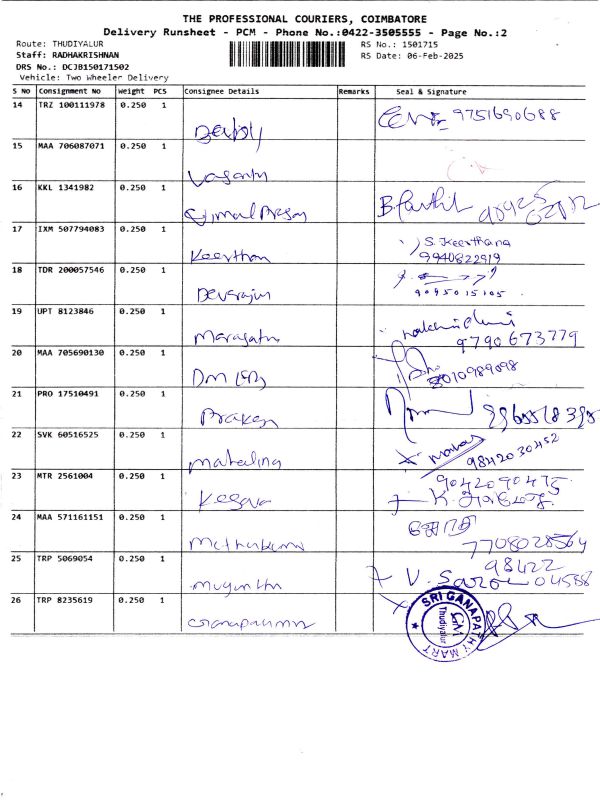 THE PROFESSIONAL COURIERS, COIMBATORE
Delivery Runsheet - PCM - Phone No.:0422-3505555 - Page No.:2
Route: THUDIYALUR
RS No.: 1501715
Staff: RADHAKRISHNAN
RS Date: 06-Feb-2025
DRS No.: DCJB150171502
Vehicle: Two Wheeler Delivery
S No Consignment No Weight PCS Consignee Details Remarks Seal & Signature
14 TRZ 100111978 0.250 1
9751690688
15 MAA 706087071 0.250 1
Vasanth
16 KKL 1341982 0.250 1
17 IXM 507794083 0.250 1
Keerthan
S. Keerthana
9940822919
18 TDR 200057546 0.250 1
Devarajun
9095015105
19 UPT 8123846 0.250 1
9790673779
20 MAA 705690130 0.250 1
8010989098
21 PRO 17510491 0.250 1
22 SVK 60516525 0.250 1
Mahaling
9842030452
23 MTR 2561004 0.250 1
Kesava
9042090475
24 MAA 571161151 0.250 1
7708028564
25 TRP 5069054 0.250 1
98422
V. Saro 04588
26 TRP 8235619 0.250 1
SRI GANAPATHY MART
GM
Thudiyalur